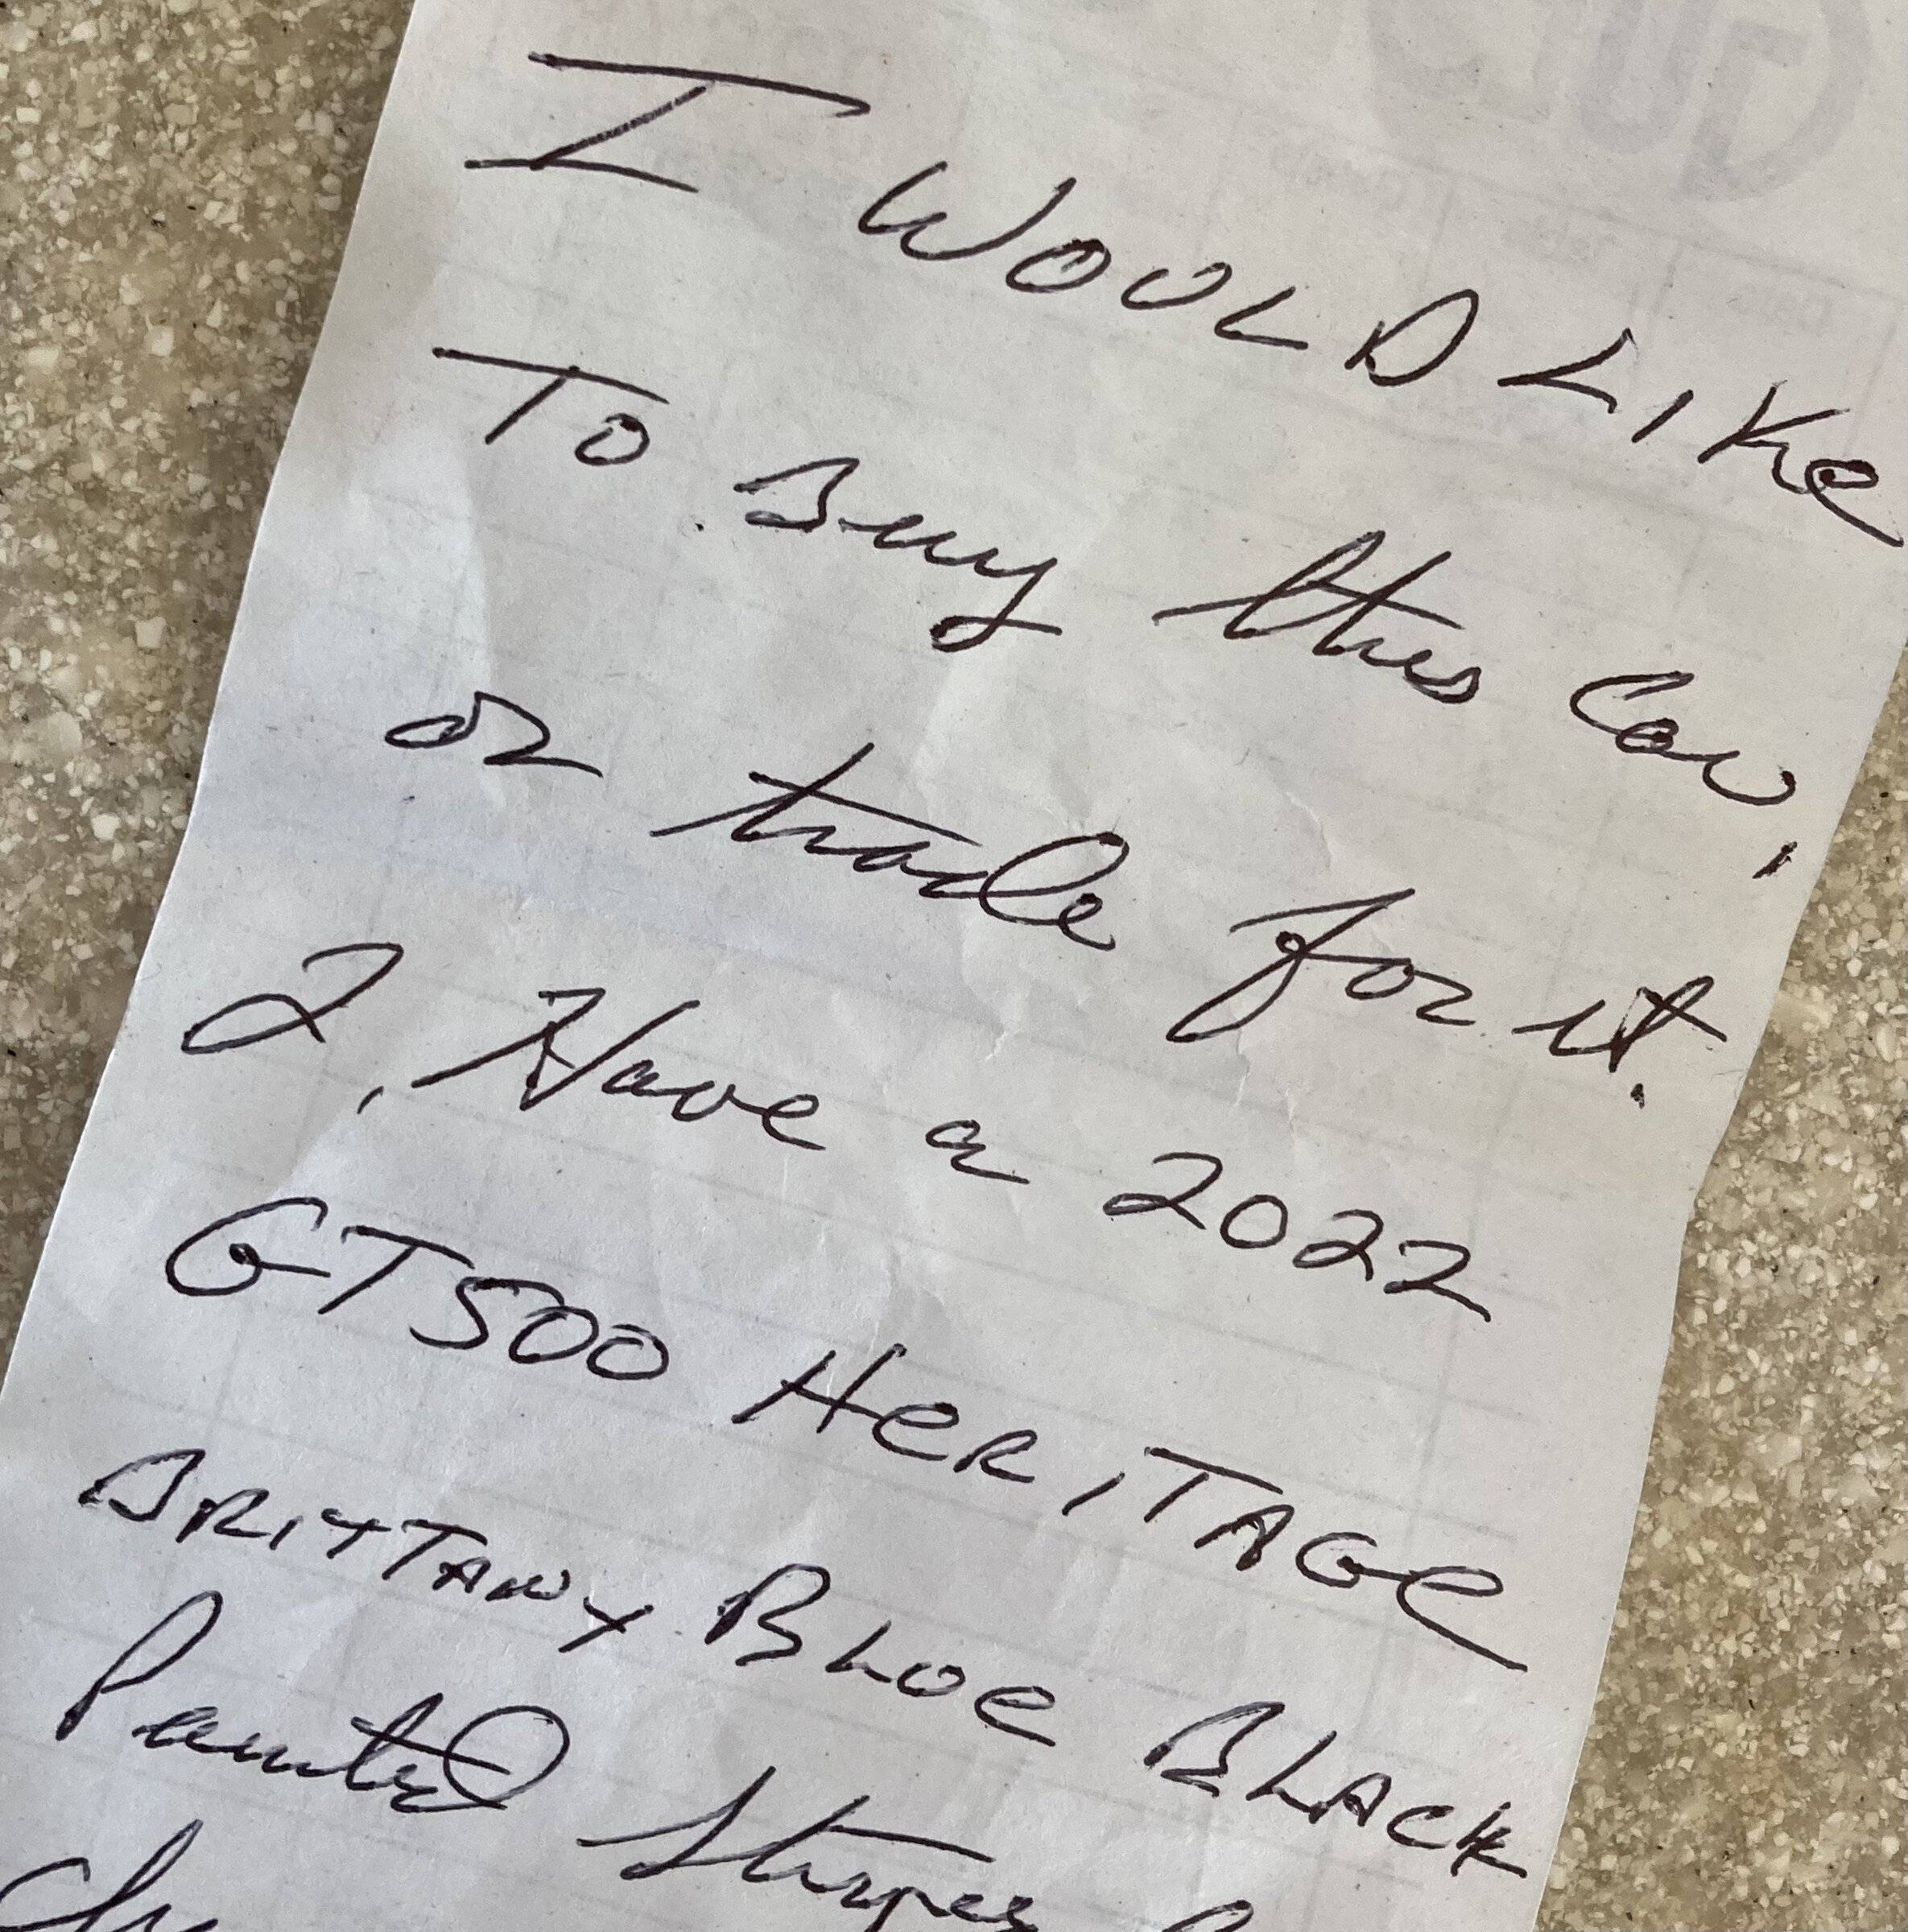 I WOULD LIKE
TO Buy this Car,
or trade for it.
I Have a 2022
GT500 HERITAGE
BRITTANY BLUE BLACK
Painted Stripes